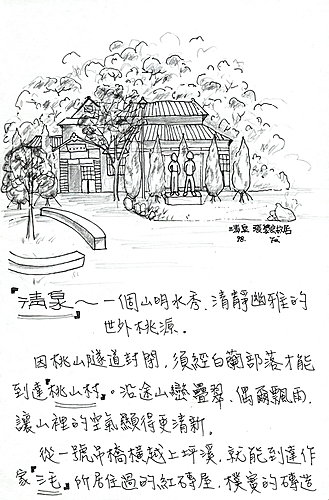 清泉 張學良故居
98.
『清泉』～一個山明水秀、清靜幽雅的
世外桃源。
因桃山隧道封閉，須經白蘭部落才能
到達『桃山村』。沿途山巒疊翠，偶爾飄雨，
讓山裡的空氣顯得更清新。
從一號吊橋橫越上坪溪，就能到達作
家『三毛』所居住過的紅磚屋，樸實的磚造